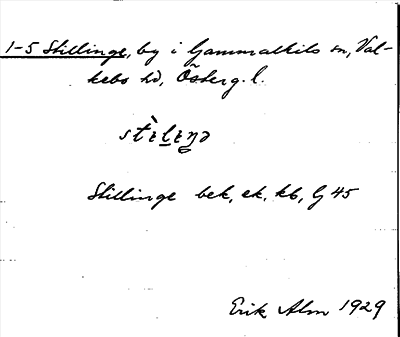 1-5 Skillinge, by i Gammalkils sn, Val-
kebo hd, Österg. l.
stìlıŋə
Skillinge bek, ek. kb, G 45
Erik Alm 1929